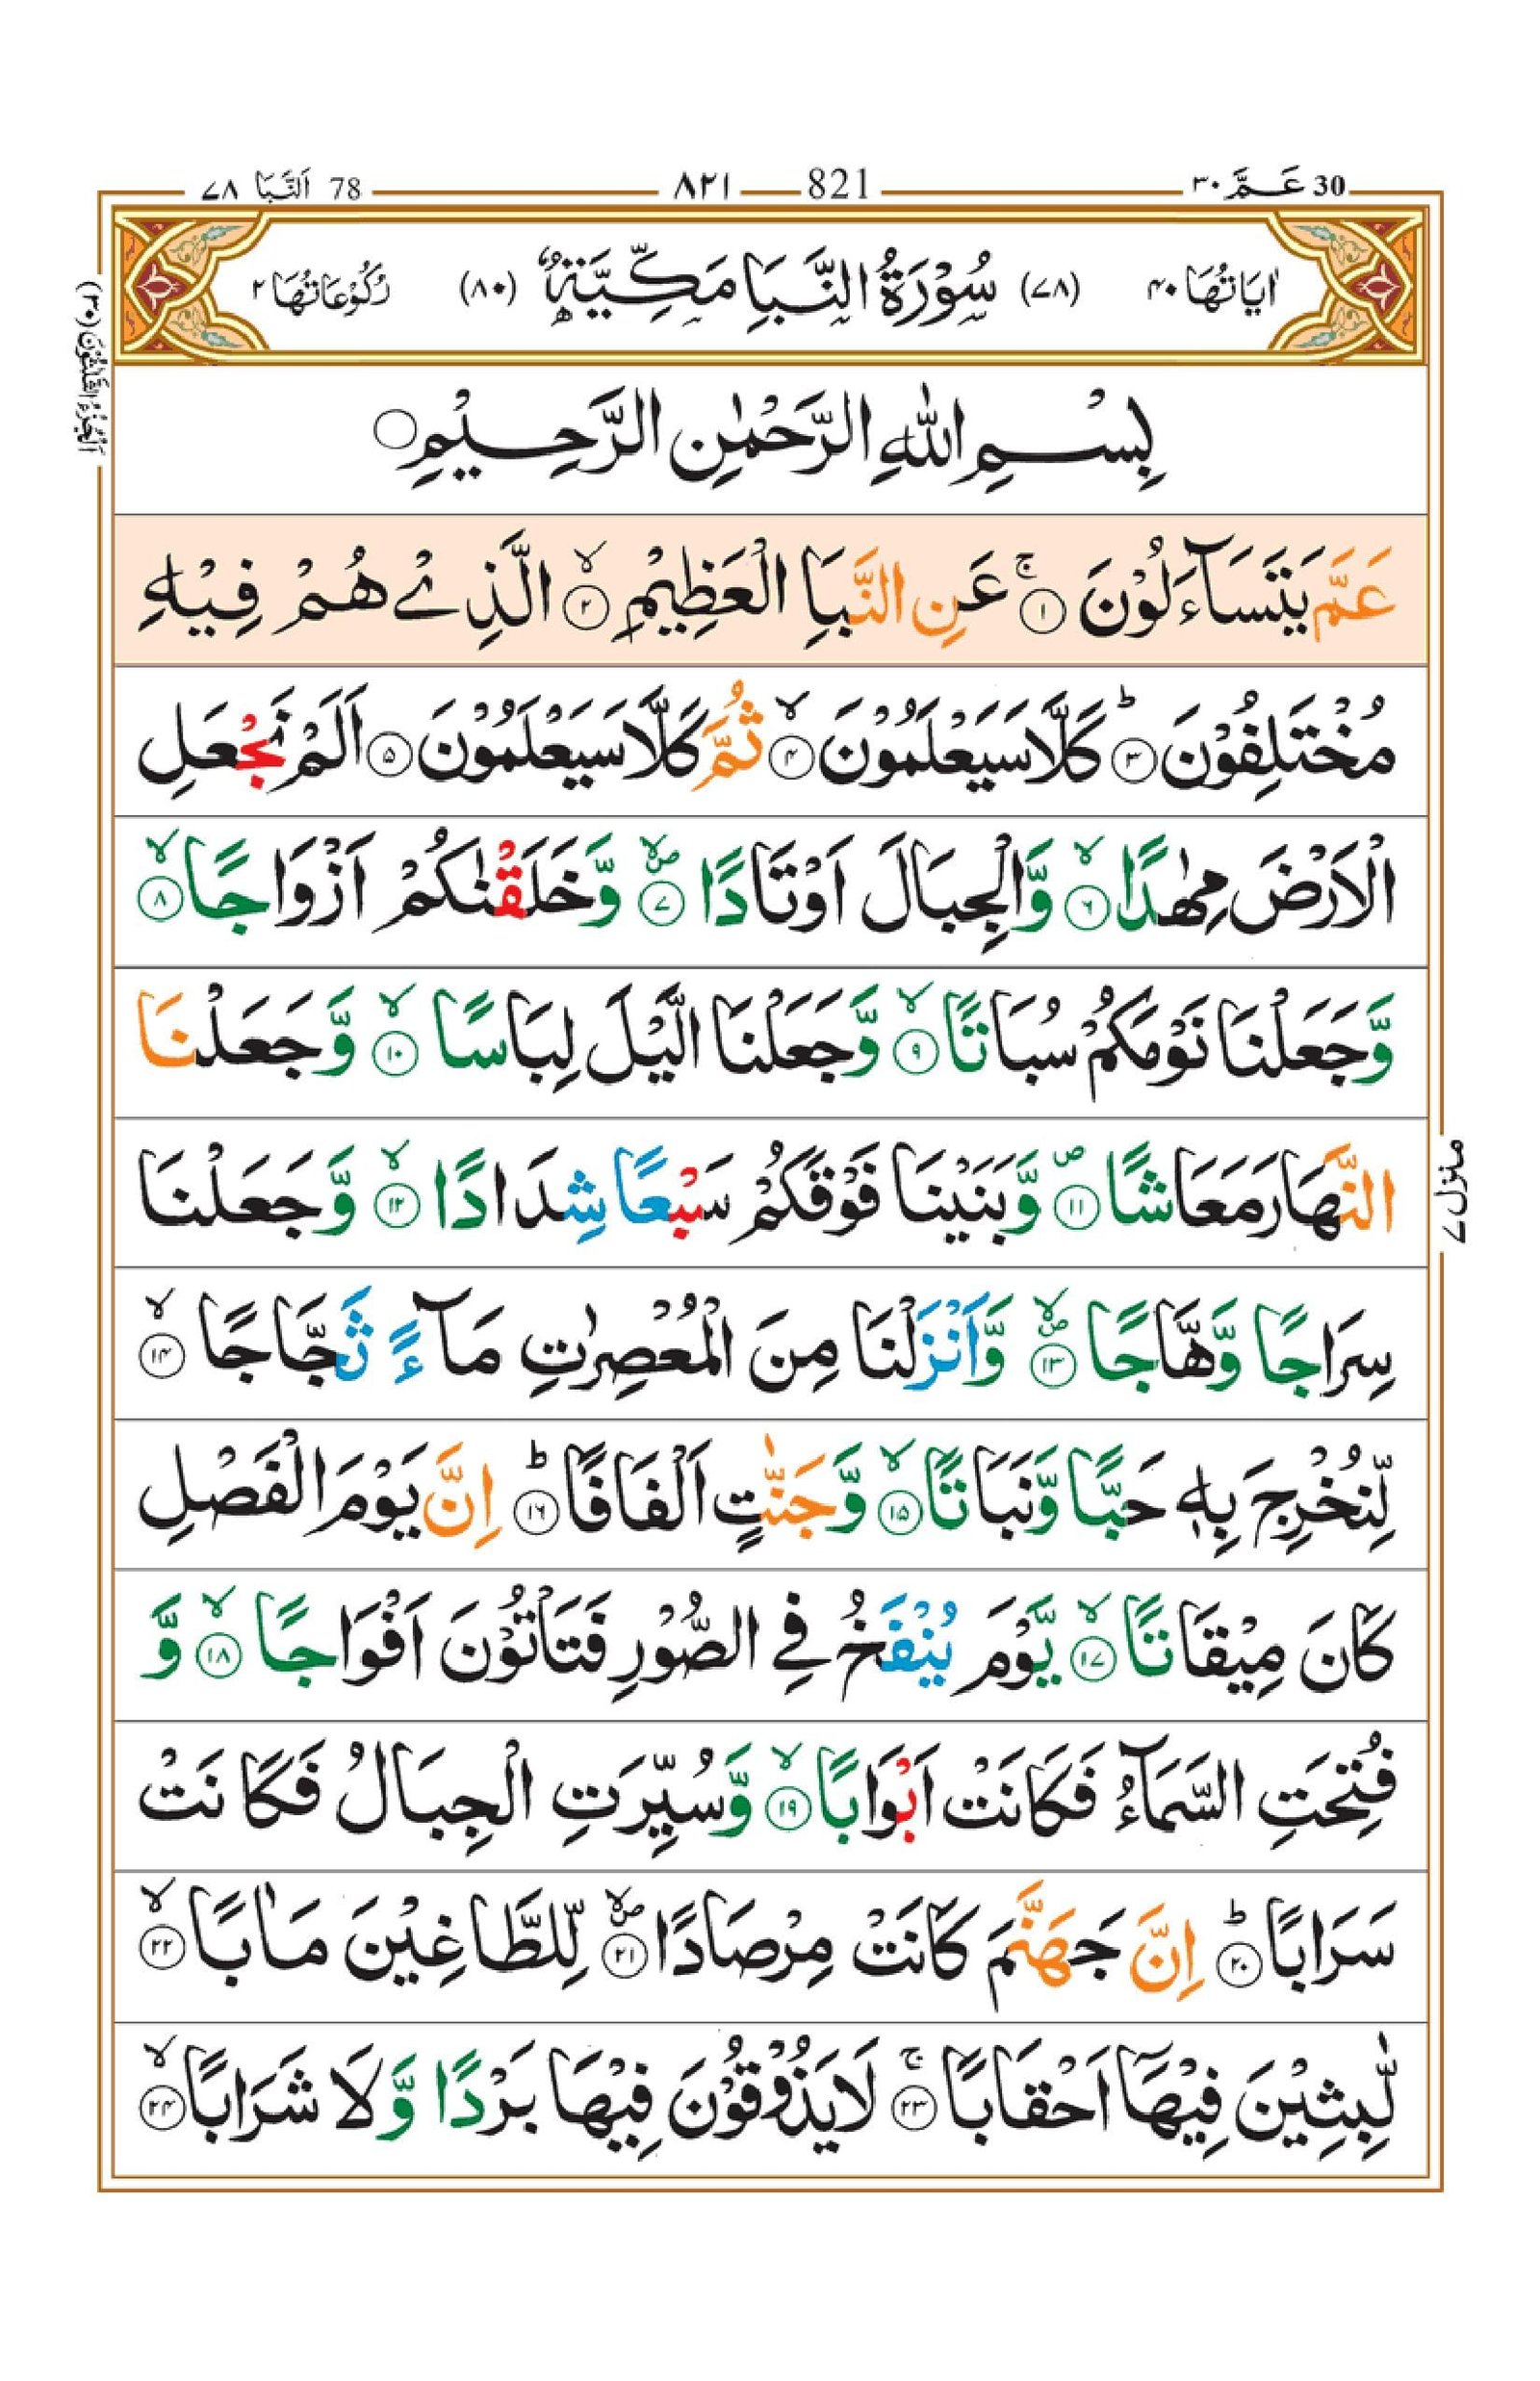 30 عَمَّ ٣٠
821 ٨٢١
78 اَلنَّبَا ٧٨
اٰيَاتُهَا ٤٠ (٧٨) سُوْرَةُ النَّبَاِ مَكِّيَّةٌ (٨٠) رُكُوْعَاتُهَا ٢
اَلْجُزْءُ الثَّلٰثُوْنَ (٣٠)
بِسْمِ اللّٰهِ الرَّحْمٰنِ الرَّحِيْمِ ○
عَمَّ يَتَسَآءَلُوْنَ ۚ ﴿١﴾ عَنِ النَّبَاِ الْعَظِيْمِ ۙ ﴿٢﴾ الَّذِيْ هُمْ فِيْهِ
مُخْتَلِفُوْنَ ؕ ﴿٣﴾ كَلَّا سَيَعْلَمُوْنَ ۙ ﴿٤﴾ ثُمَّ كَلَّا سَيَعْلَمُوْنَ ﴿٥﴾ اَلَمْ نَجْعَلِ
الْاَرْضَ مِهٰدًا ۙ ﴿٦﴾ وَّالْجِبَالَ اَوْتَادًا ۪ۙ ﴿٧﴾ وَّخَلَقْنٰكُمْ اَزْوَاجًا ۙ ﴿٨﴾
وَّجَعَلْنَا نَوْمَكُمْ سُبَاتًا ۙ ﴿٩﴾ وَّجَعَلْنَا الَّيْلَ لِبَاسًا ۙ ﴿١٠﴾ وَّجَعَلْنَا
النَّهَارَ مَعَاشًا ۪ ﴿١١﴾ وَّبَنَيْنَا فَوْقَكُمْ سَبْعًا شِدَادًا ۙ ﴿١٢﴾ وَّجَعَلْنَا
سِرَاجًا وَّهَّاجًا ۪ۙ ﴿١٣﴾ وَّاَنْزَلْنَا مِنَ الْمُعْصِرٰتِ مَآءً ثَجَّاجًا ۙ ﴿١٤﴾
لِّنُخْرِجَ بِهٖ حَبًّا وَّنَبَاتًا ۙ ﴿١٥﴾ وَّجَنّٰتٍ اَلْفَافًا ؕ ﴿١٦﴾ اِنَّ يَوْمَ الْفَصْلِ
كَانَ مِيْقَاتًا ۙ ﴿١٧﴾ يَّوْمَ يُنْفَخُ فِي الصُّوْرِ فَتَاْتُوْنَ اَفْوَاجًا ۙ ﴿١٨﴾ وَّ
فُتِحَتِ السَّمَآءُ فَكَانَتْ اَبْوَابًا ۙ ﴿١٩﴾ وَّسُيِّرَتِ الْجِبَالُ فَكَانَتْ
سَرَابًا ؕ ﴿٢٠﴾ اِنَّ جَهَنَّمَ كَانَتْ مِرْصَادًا ۪ۙ ﴿٢١﴾ لِّلطَّاغِيْنَ مَاٰبًا ۙ ﴿٢٢﴾
لّٰبِثِيْنَ فِيْهَآ اَحْقَابًا ۚ ﴿٢٣﴾ لَا يَذُوْقُوْنَ فِيْهَا بَرْدًا وَّلَا شَرَابًا ۙ ﴿٢٤﴾
منزل ٧